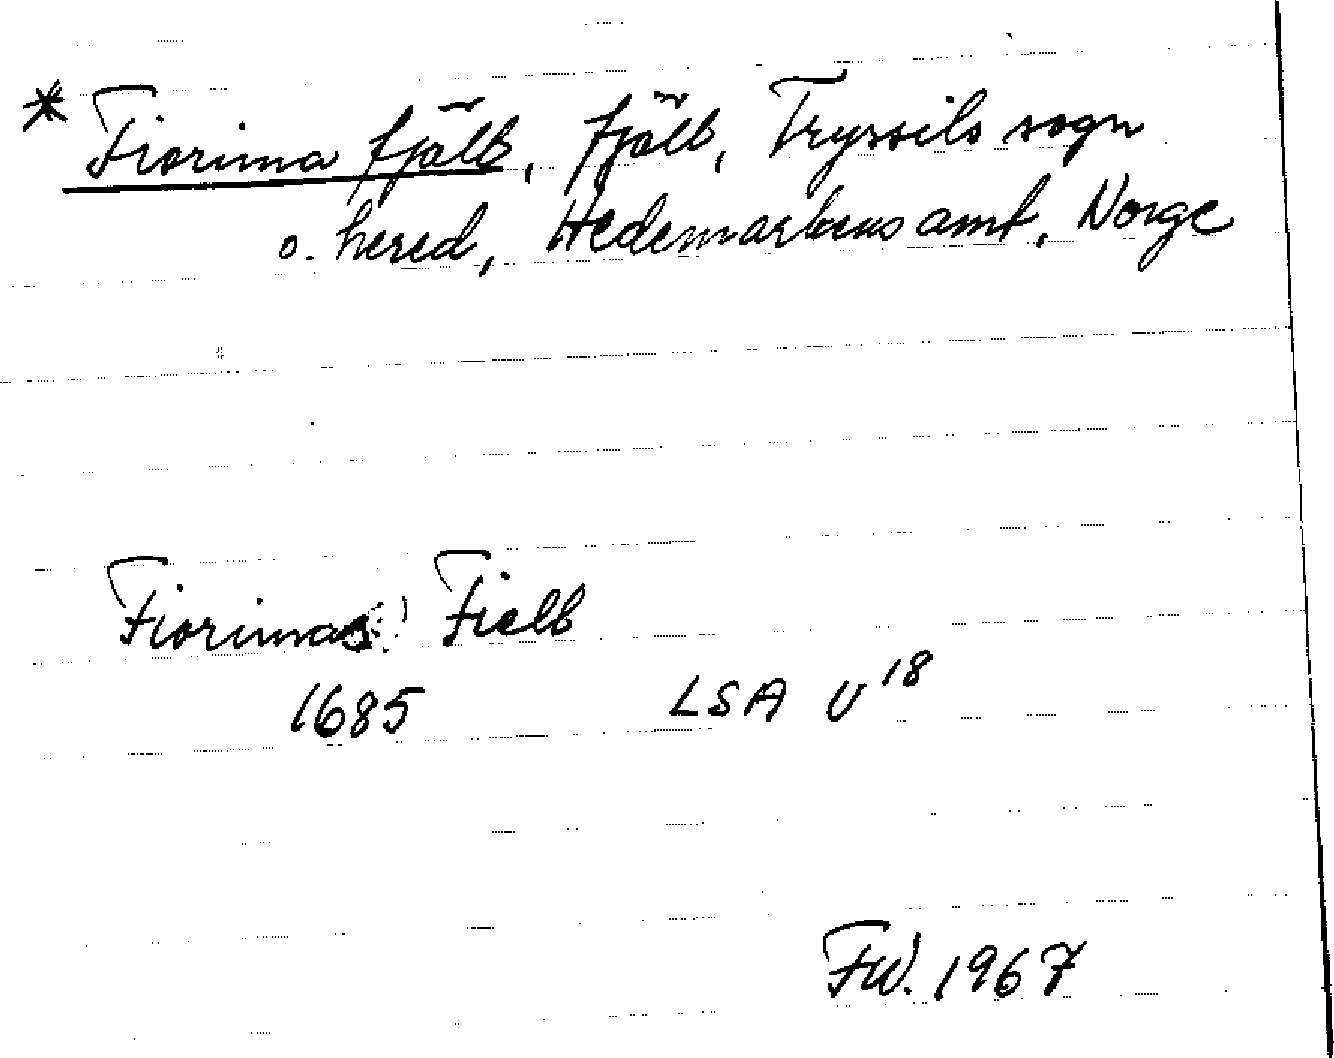 * Fiorima fjäll, fjäll, Tryssils sogn
o. hered, Hedemarkens amt, Norge
Fiorimas! Fiell
1685 LSA U18
FW. 1967